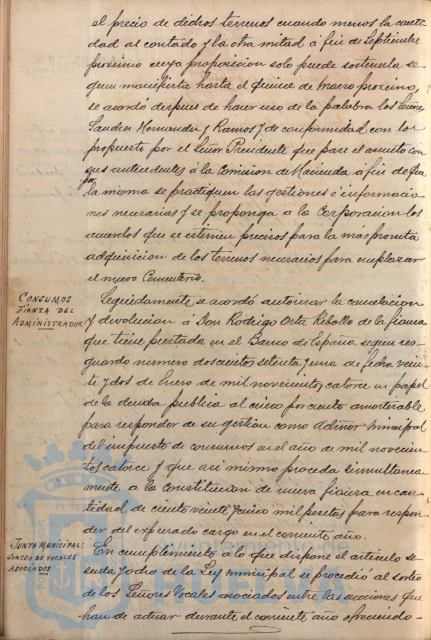 el precio de dichos terrenos cuando menos la canti-
dad al contado y la otra mitad á fin de Septiembre
próximo cuya proposicion solo puede sostenerla se-
gun manifiesta hasta el quince de Marzo proximo,
se acordó despues de hacer uso de la palabra los Señores
Hernandez y Ramos y de conformidad con lo
propuesto por el Señor Presidente que pase el asunto con
sus antecedentes á la Comision de Hacienda á fin de que
por
la misma se practiquen las gestiones é informacio-
nes necesarias y se proponga a la Corporacion los
acuerdos que se estimen precisos para la mas pronta
adquisicion de los terrenos necesarios para emplazar
el nuevo Cementerio.
CONSUMOS
FIANZA DEL
ADMINISTRADOR
Seguidamente se acordó autorizar la cancelacion
y devolucion á Don Rodrigo Orta Rebollo de la fianza
que tiene prestada en el Banco de España segun res-
guardo numero doscientos setenta y uno de fecha vein-
te y dos de Enero de mil novecientos catorce en papel
de la deuda publica al cinco por ciento amortizable
para responder de su gestion como Admor municipal
del impuesto de consumos en el año de mil novecien-
tos catorce y que asi mismo proceda simultanea-
mente a la constitucion de nueva fianza en can-
tidad de ciento veinte y cinco mil pesetas para respon-
der del expresado cargo en el corriente año.
JUNTA MUNICIPAL:
SORTEO DE VOCALES
ASOCIADOS
En cumplimiento a lo que dispone el articulo se-
senta y ocho de la Ley Municipal se procedió al sorteo
de los Señores Vocales asociados entre las secciones que
han de actuar durante el corriente año ofreciendo